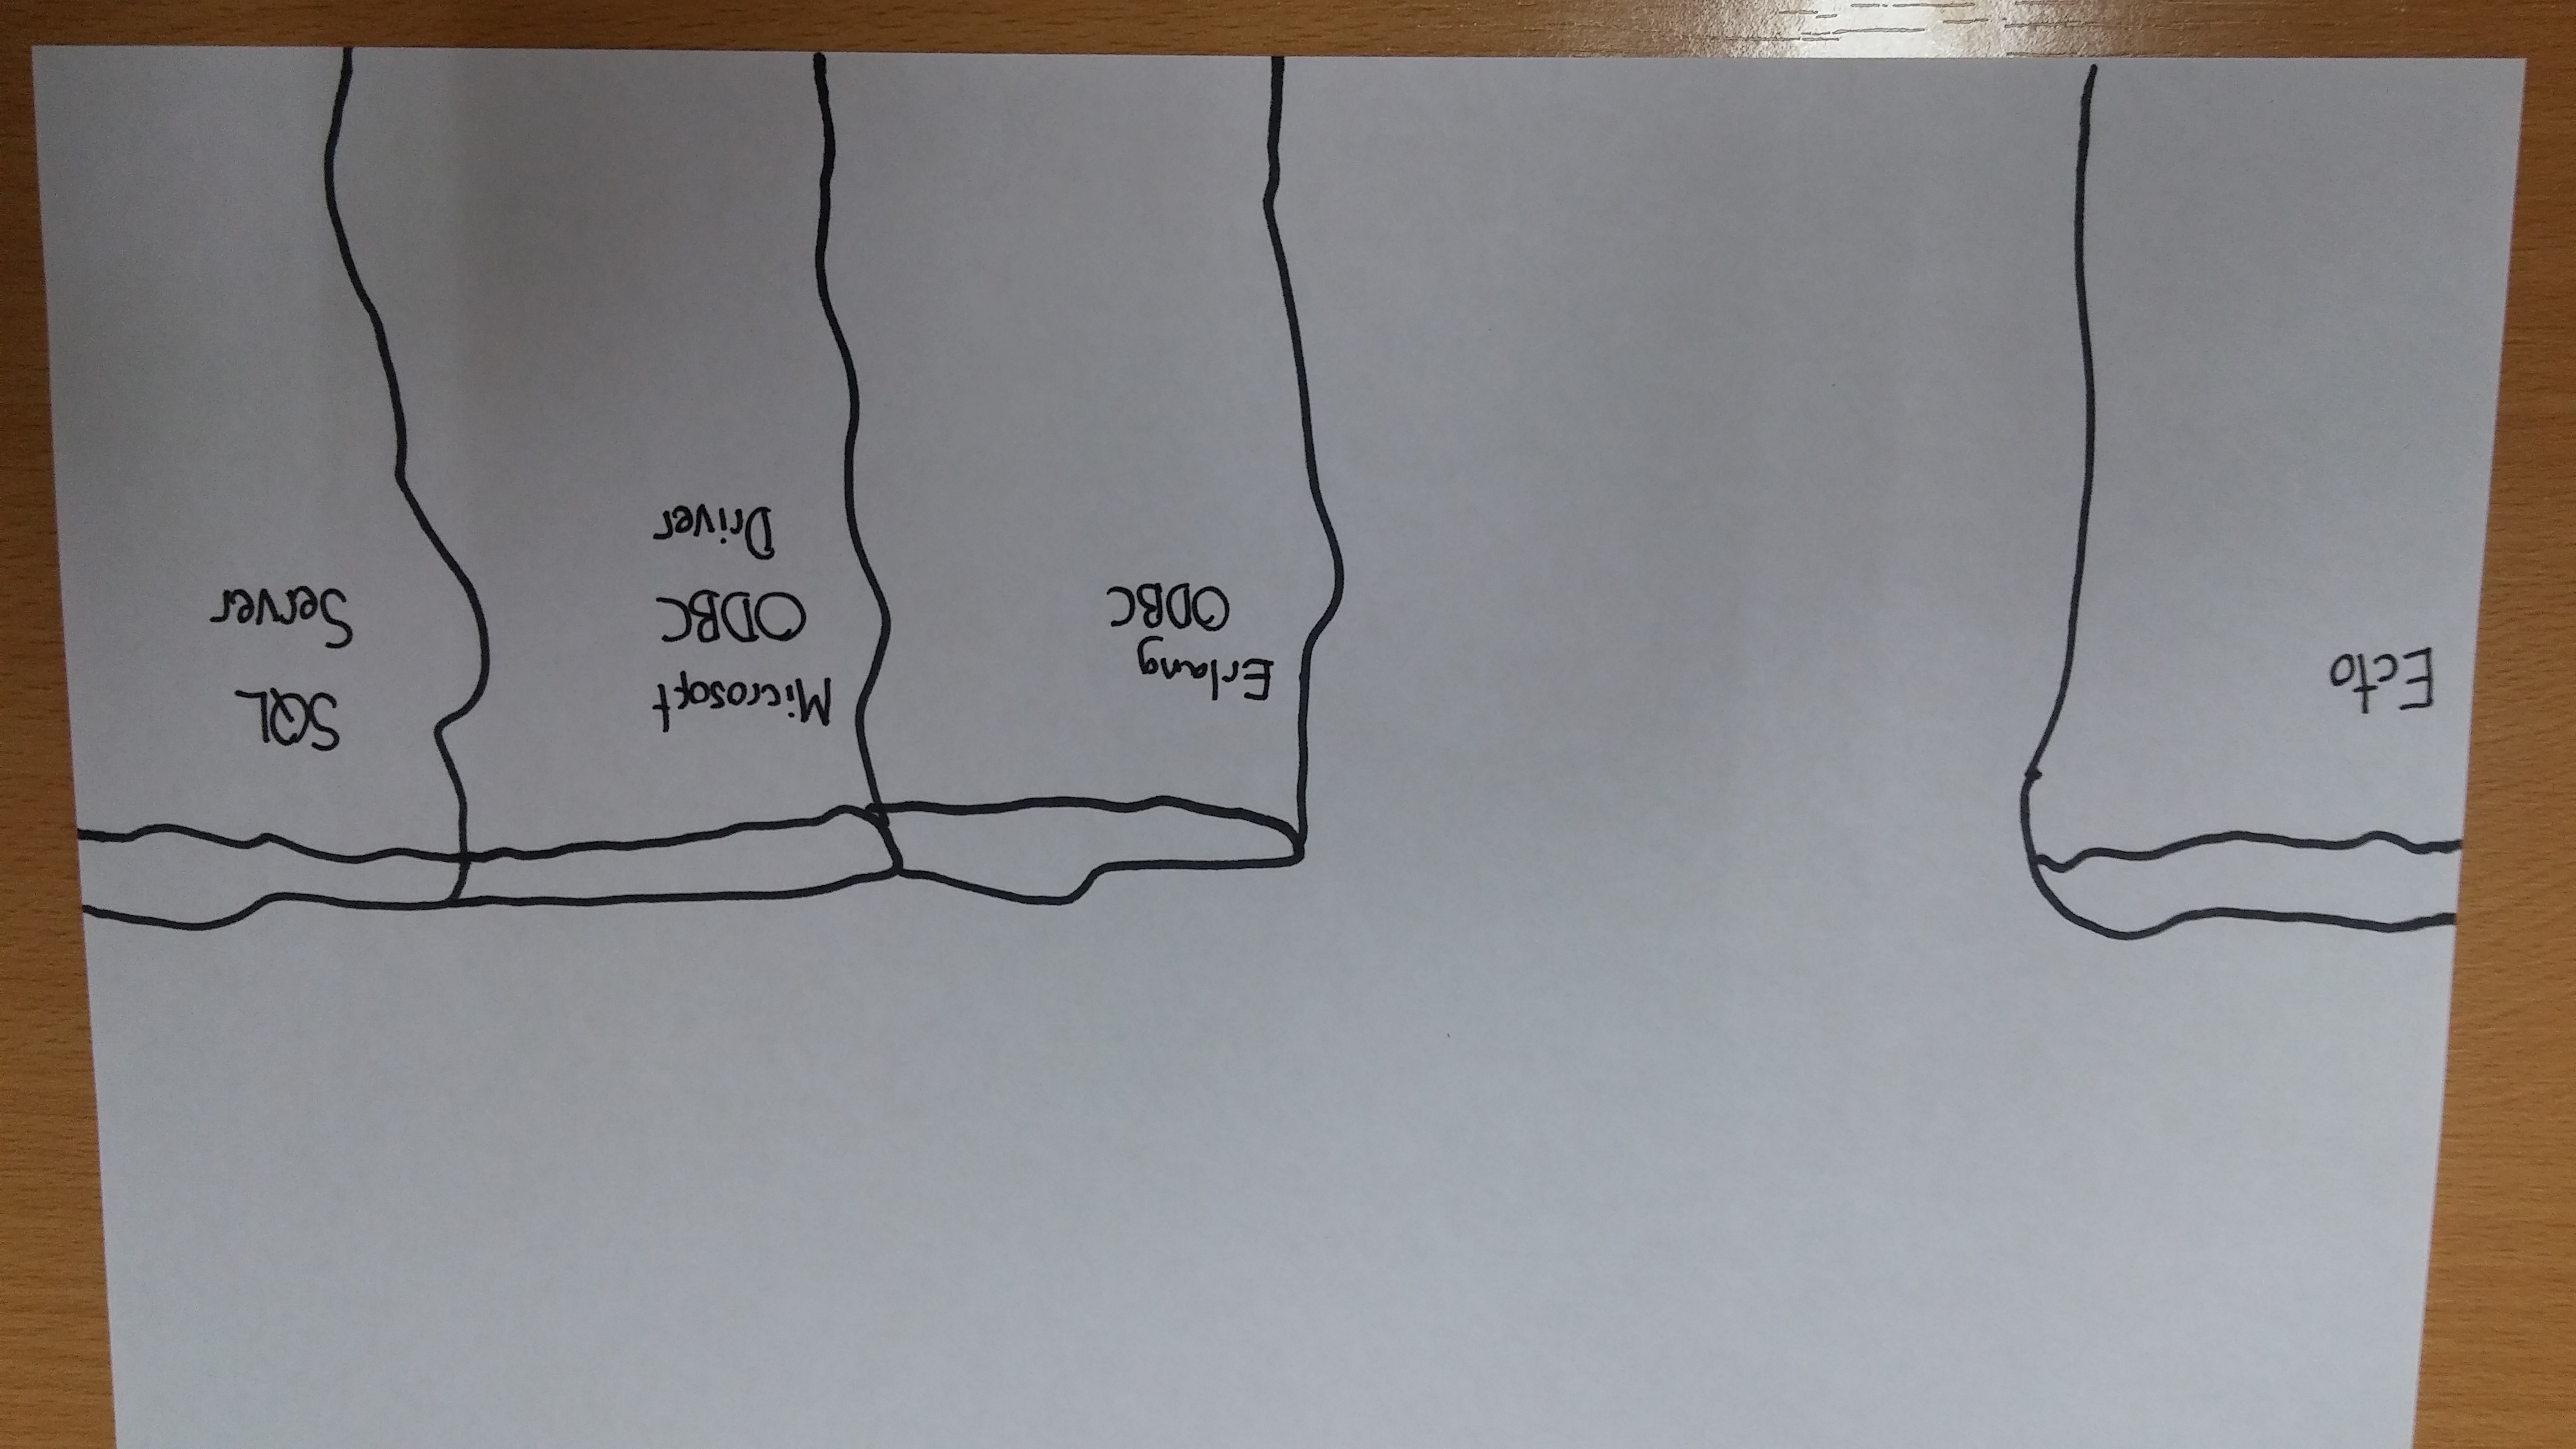 Ecto
Erlang
ODBC
Microsoft
ODBC
Driver
SQL
Server